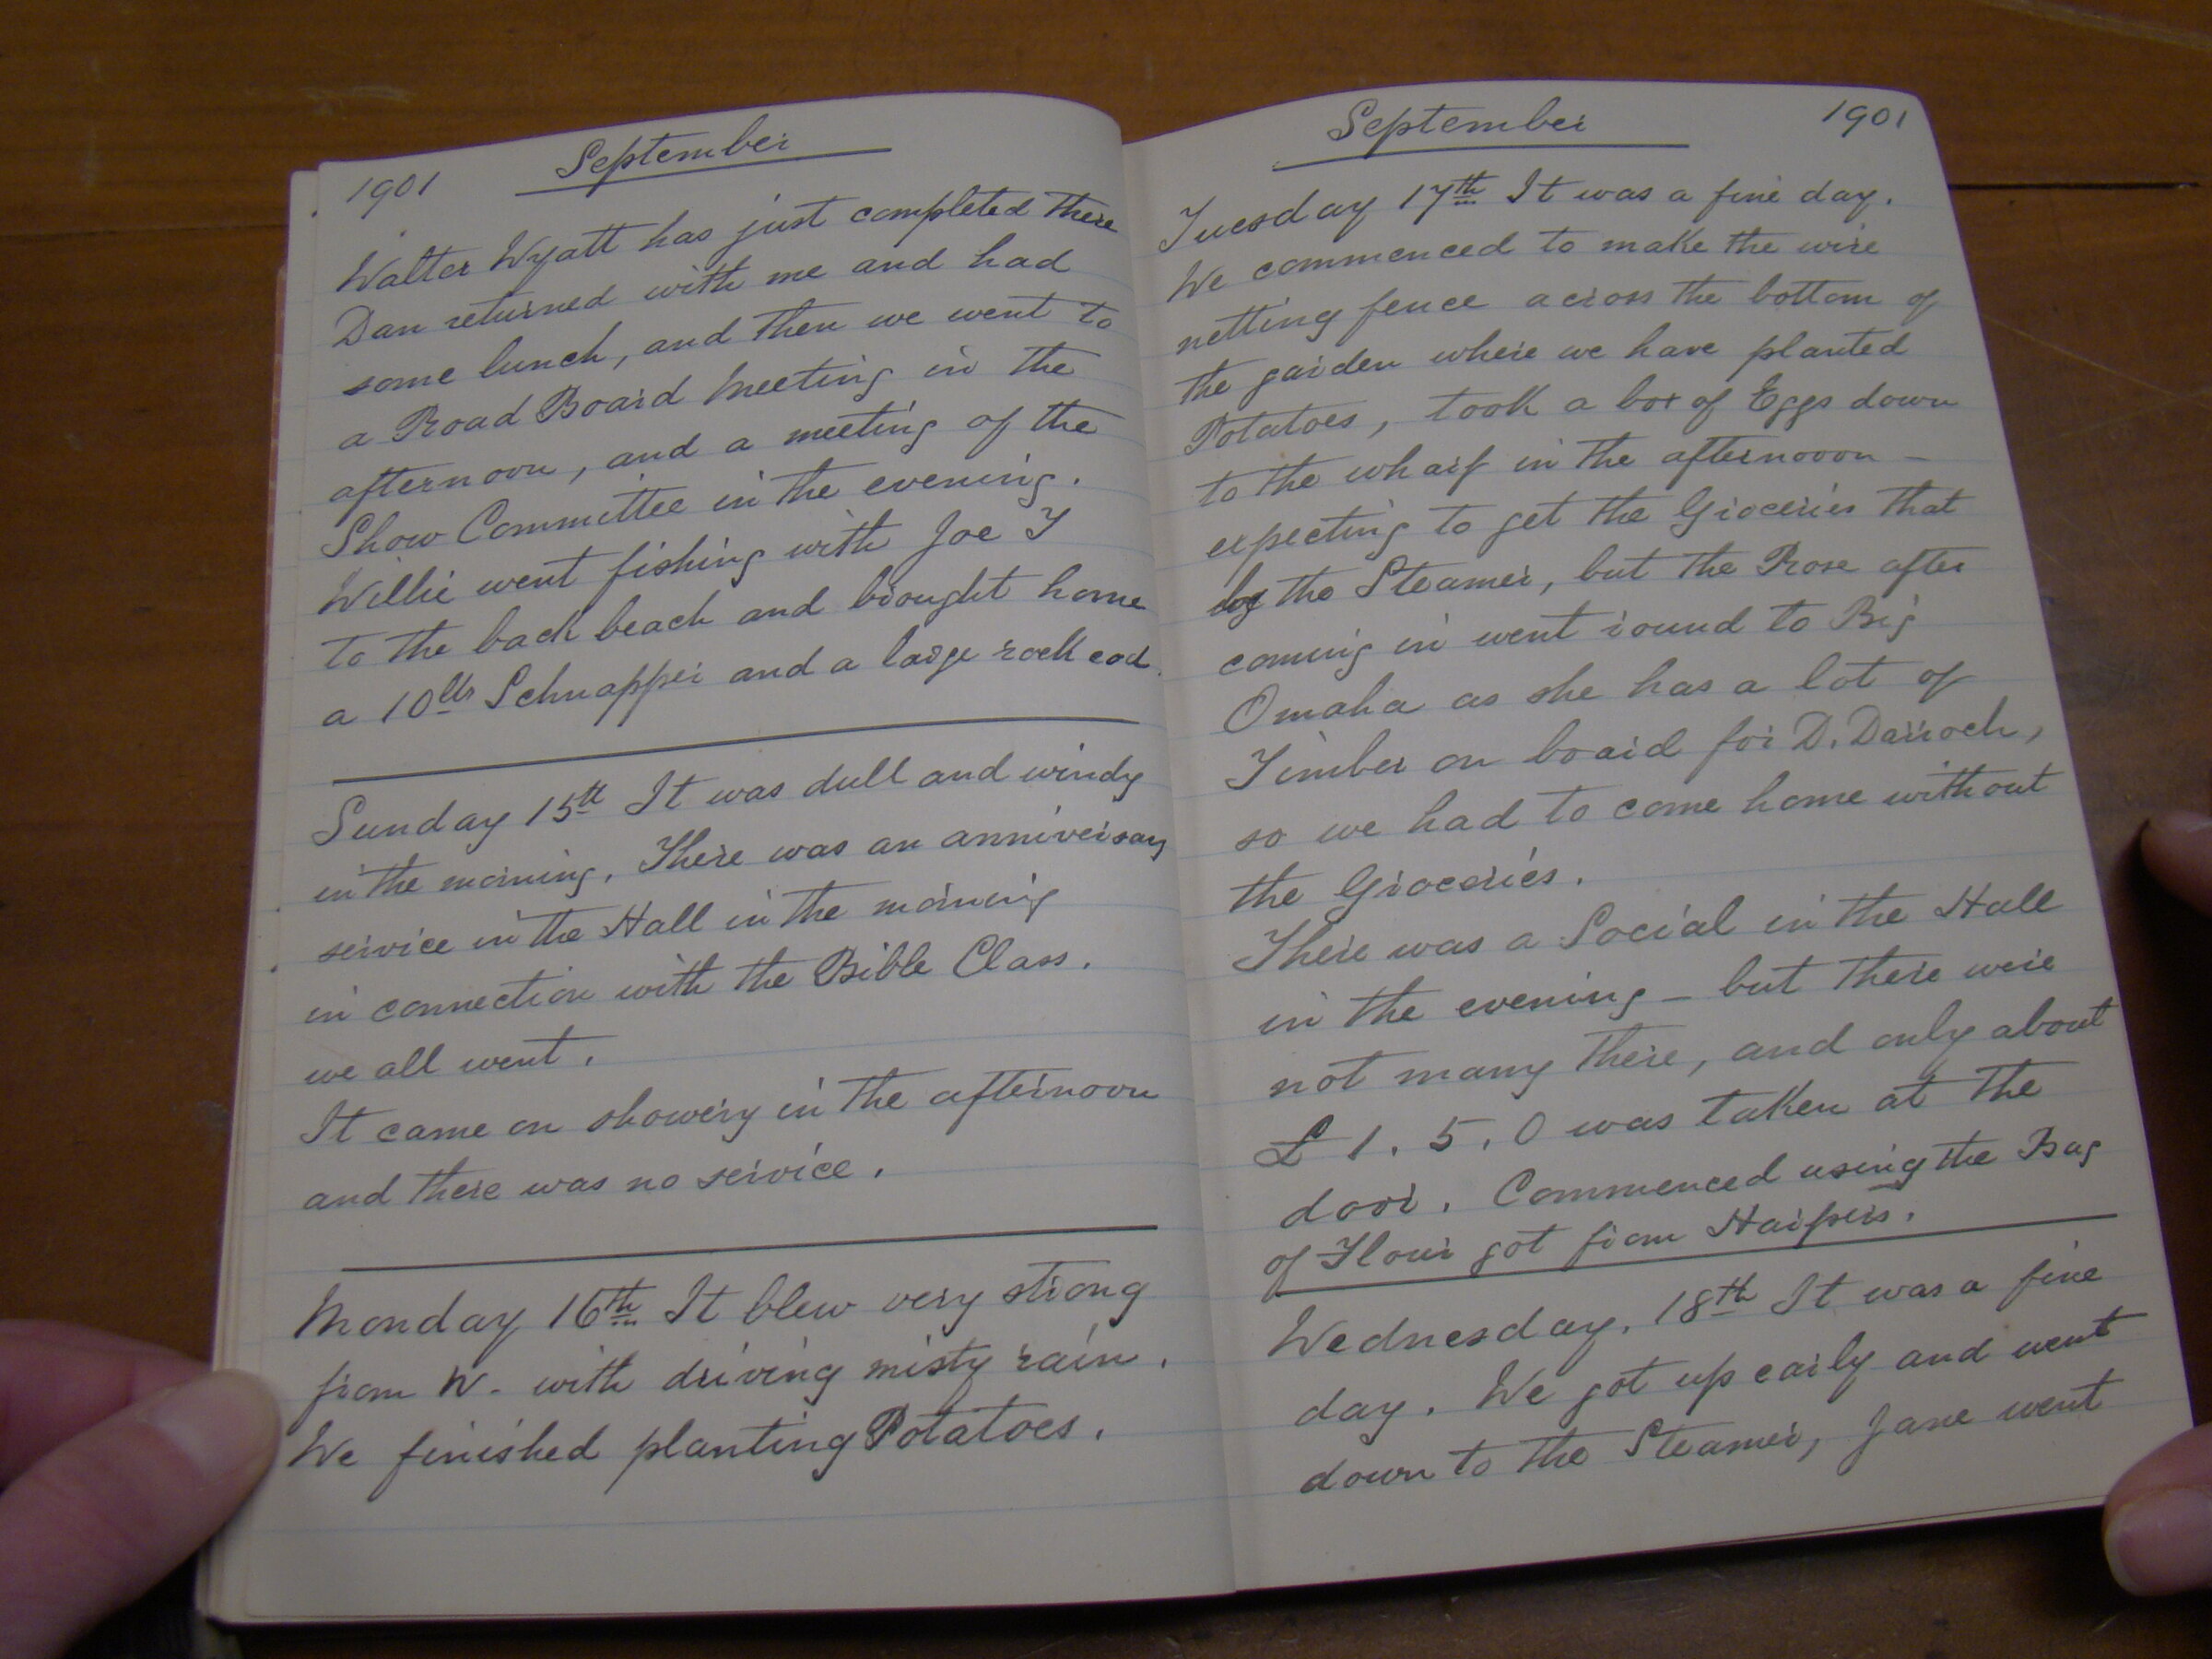 1901 September
Walter Wyatt has just completed there
Dan returned with me and had
some lunch, and then we went to
a Road Board Meeting in the
afternoon, and a meeting of the
Show Committee in the evening.
Willie went fishing with Joe T
to the back beach and brought home
a 10lbs Schnapper and a large rock cod.
Sunday 15th It was dull and windy
in the morning. There was an anniversary
service in the Hall in the morning
in connection with the Bible Class.
we all went.
It came on showery in the afternoon
and there was no service.
Monday 16th It blew very strong
from W. with driving misty rain.
We finished planting Potatoes.
September 1901
Tuesday 17th It was a fine day.
We commenced to make the wire
netting fence across the bottom of
the garden where we have planted
Potatoes, took a box of Eggs down
to the wharf in the afternooon -
expecting to get the Groceries that
by the Steamer, but the Rose after
coming in went round to Big
Omaha as she has a lot of
Timber on board for D. Darroch,
so we had to come home without
the Groceries.
There was a Social in the Hall
in the evening - but there were
not many there, and only about
£1.5.0 was taken at the
door. Commenced using the Bag
of Flour got from Harpers.
Wednesday, 18th It was a fine
day. We got up early and went
down to the Steamer, Jane went